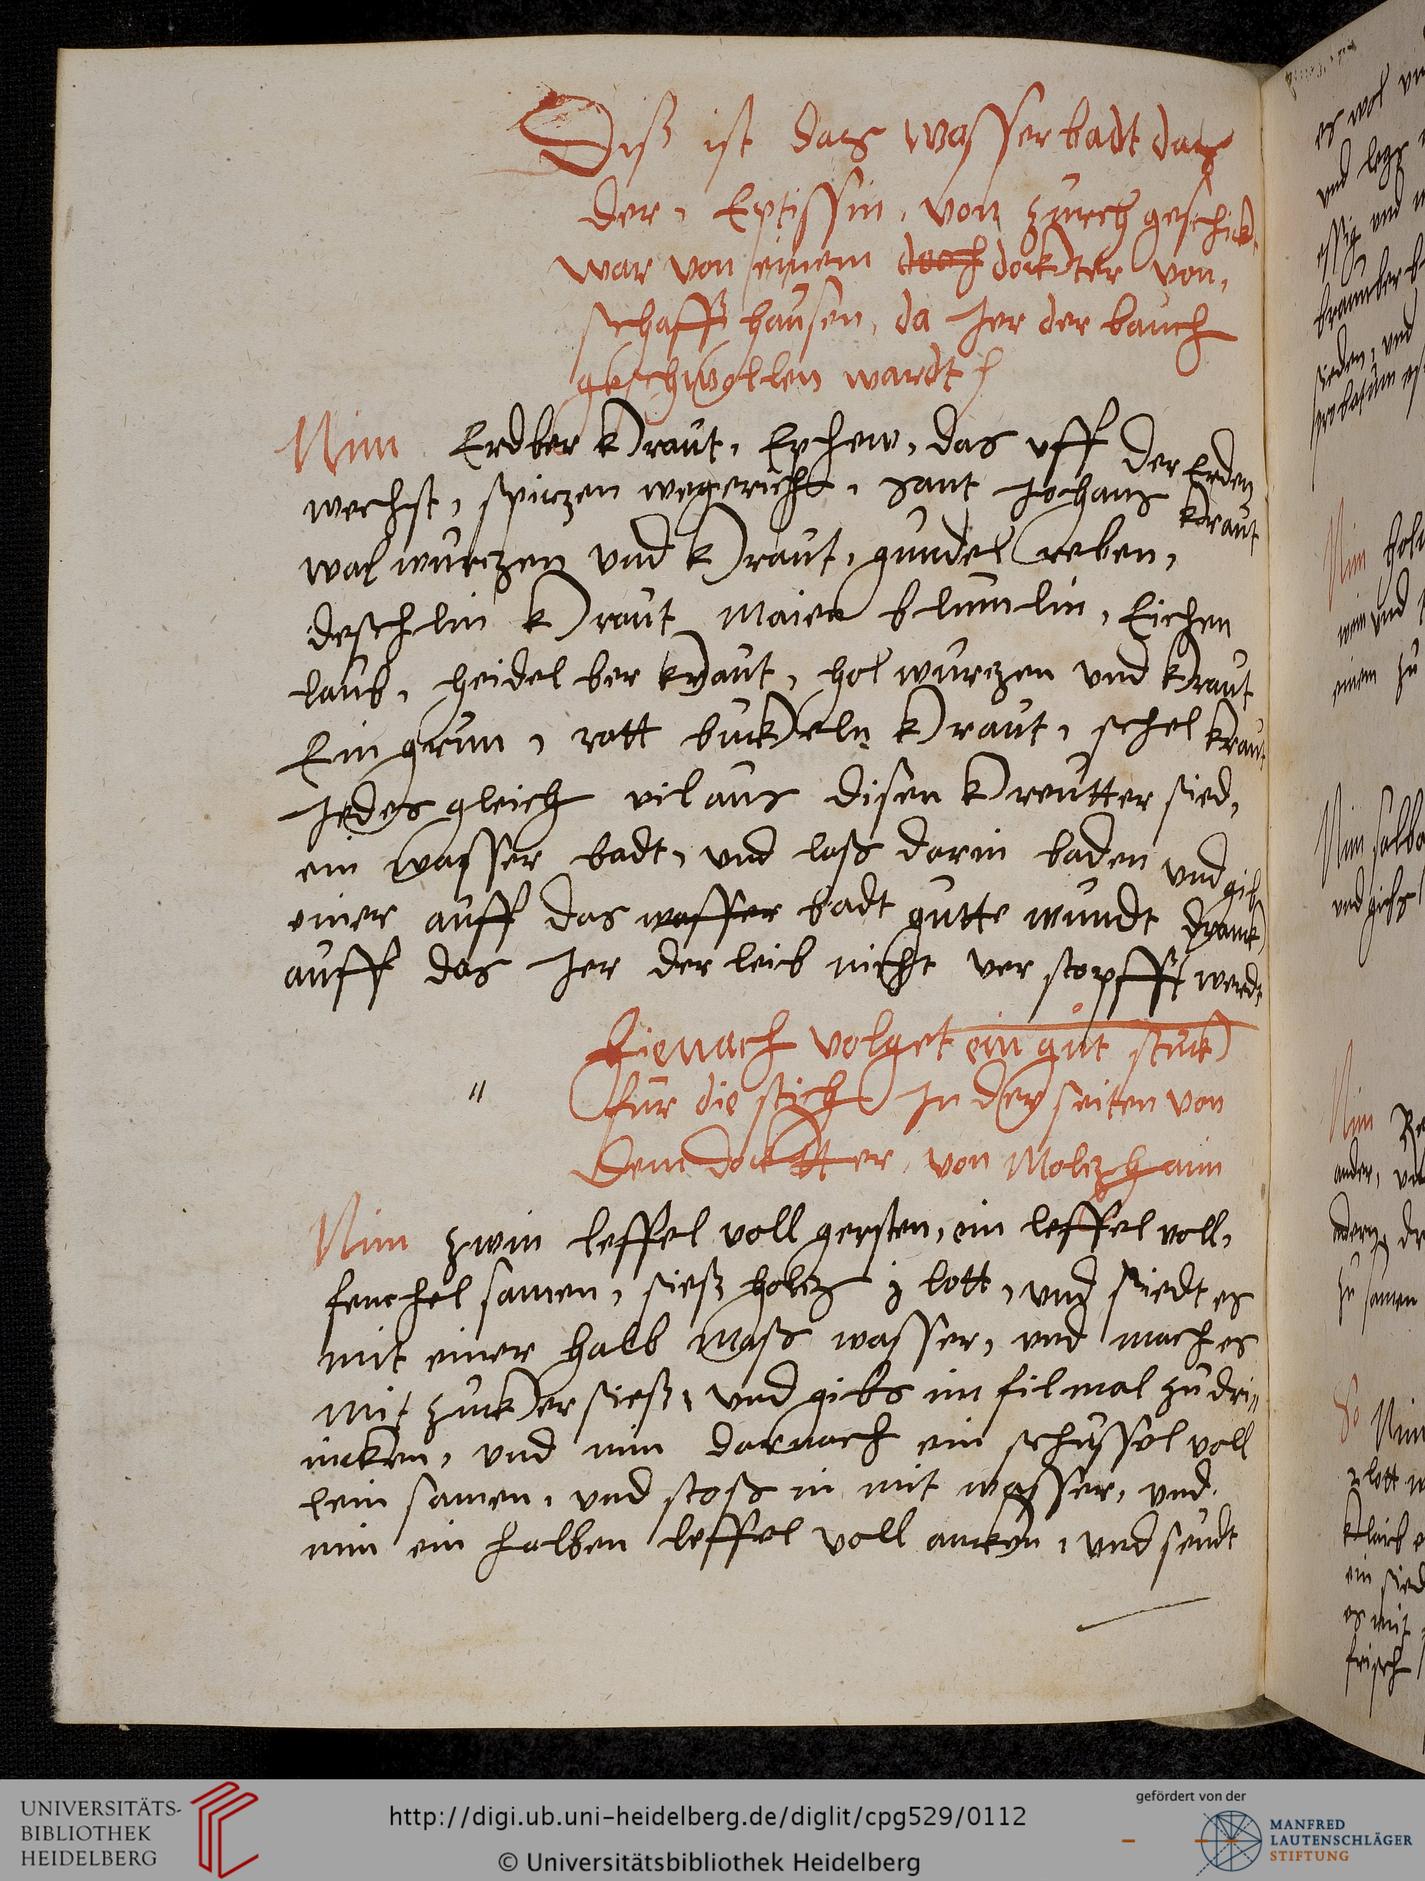 Diß ist das wasser badt das
der, Eptissin, von zurch geschickt
war von einem doch dockter von,
schaff hausen, da Jer der bauch
geschwollen wardt
Nim Erdber kraut, Ephew, das uff der Erden
wechst, spitzen wegericht, sant Johans kraut
wal wurczen vnd kraut, gundel reben,
deschlin kraut Maien blumlin, Eichen
laub, heidel ber kraut, hol wurczen vnd kraut
Ein grun, rott buckeln kraut, schel kraut
Jedes gleich vil aus disen kreutter sied,
ein wasser badt, vnd laß darin baden vnd gib
einer auff das wasser badt gutte wundt dranck
auff das Jer der leib nicht ver stopfft werdt
Hienach volget ein gůt stuck
fur die stich In der seiten von
Dem dockter, von Molczhaim
Nim zwin leffel voll gersten, ein leffel voll,
fenchel samen, sieß holcz j lott, vnd siedt es
mit einer halb Maß wasser, vnd mach es
mit zucker sieß, vnd gibs im fil mal zu dri„
ncken, vnd nim darnach ein schussel voll
lein samen, vnd stoß in mit wasser, vnd
nim ein halben leffel voll ancken, vnd seudt
es wol
und leg
essig und
sieden, und
probatum
Nim
wein und
einem zu
Nim salb
Nim
ander, und
zu samen
Nim
lott
ein sied
es mit
frisch
UNIVERSITÄTS-
BIBLIOTHEK
HEIDELBERG
http://digi.ub.uni-heidelberg.de/diglit/cpg529/0112
© Universitätsbibliothek Heidelberg
gefördert von der
MANFRED
LAUTENSCHLÄGER
STIFTUNG